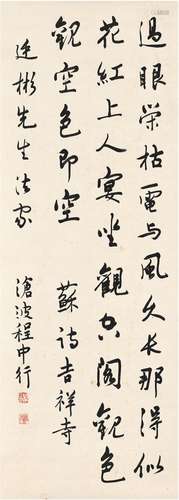 過眼榮枯電与風久長那得似
花紅上人宴坐觀空閣觀色
觀空色即空 蘇詩吉祥寺
廷彬先生法家
滄波程中行